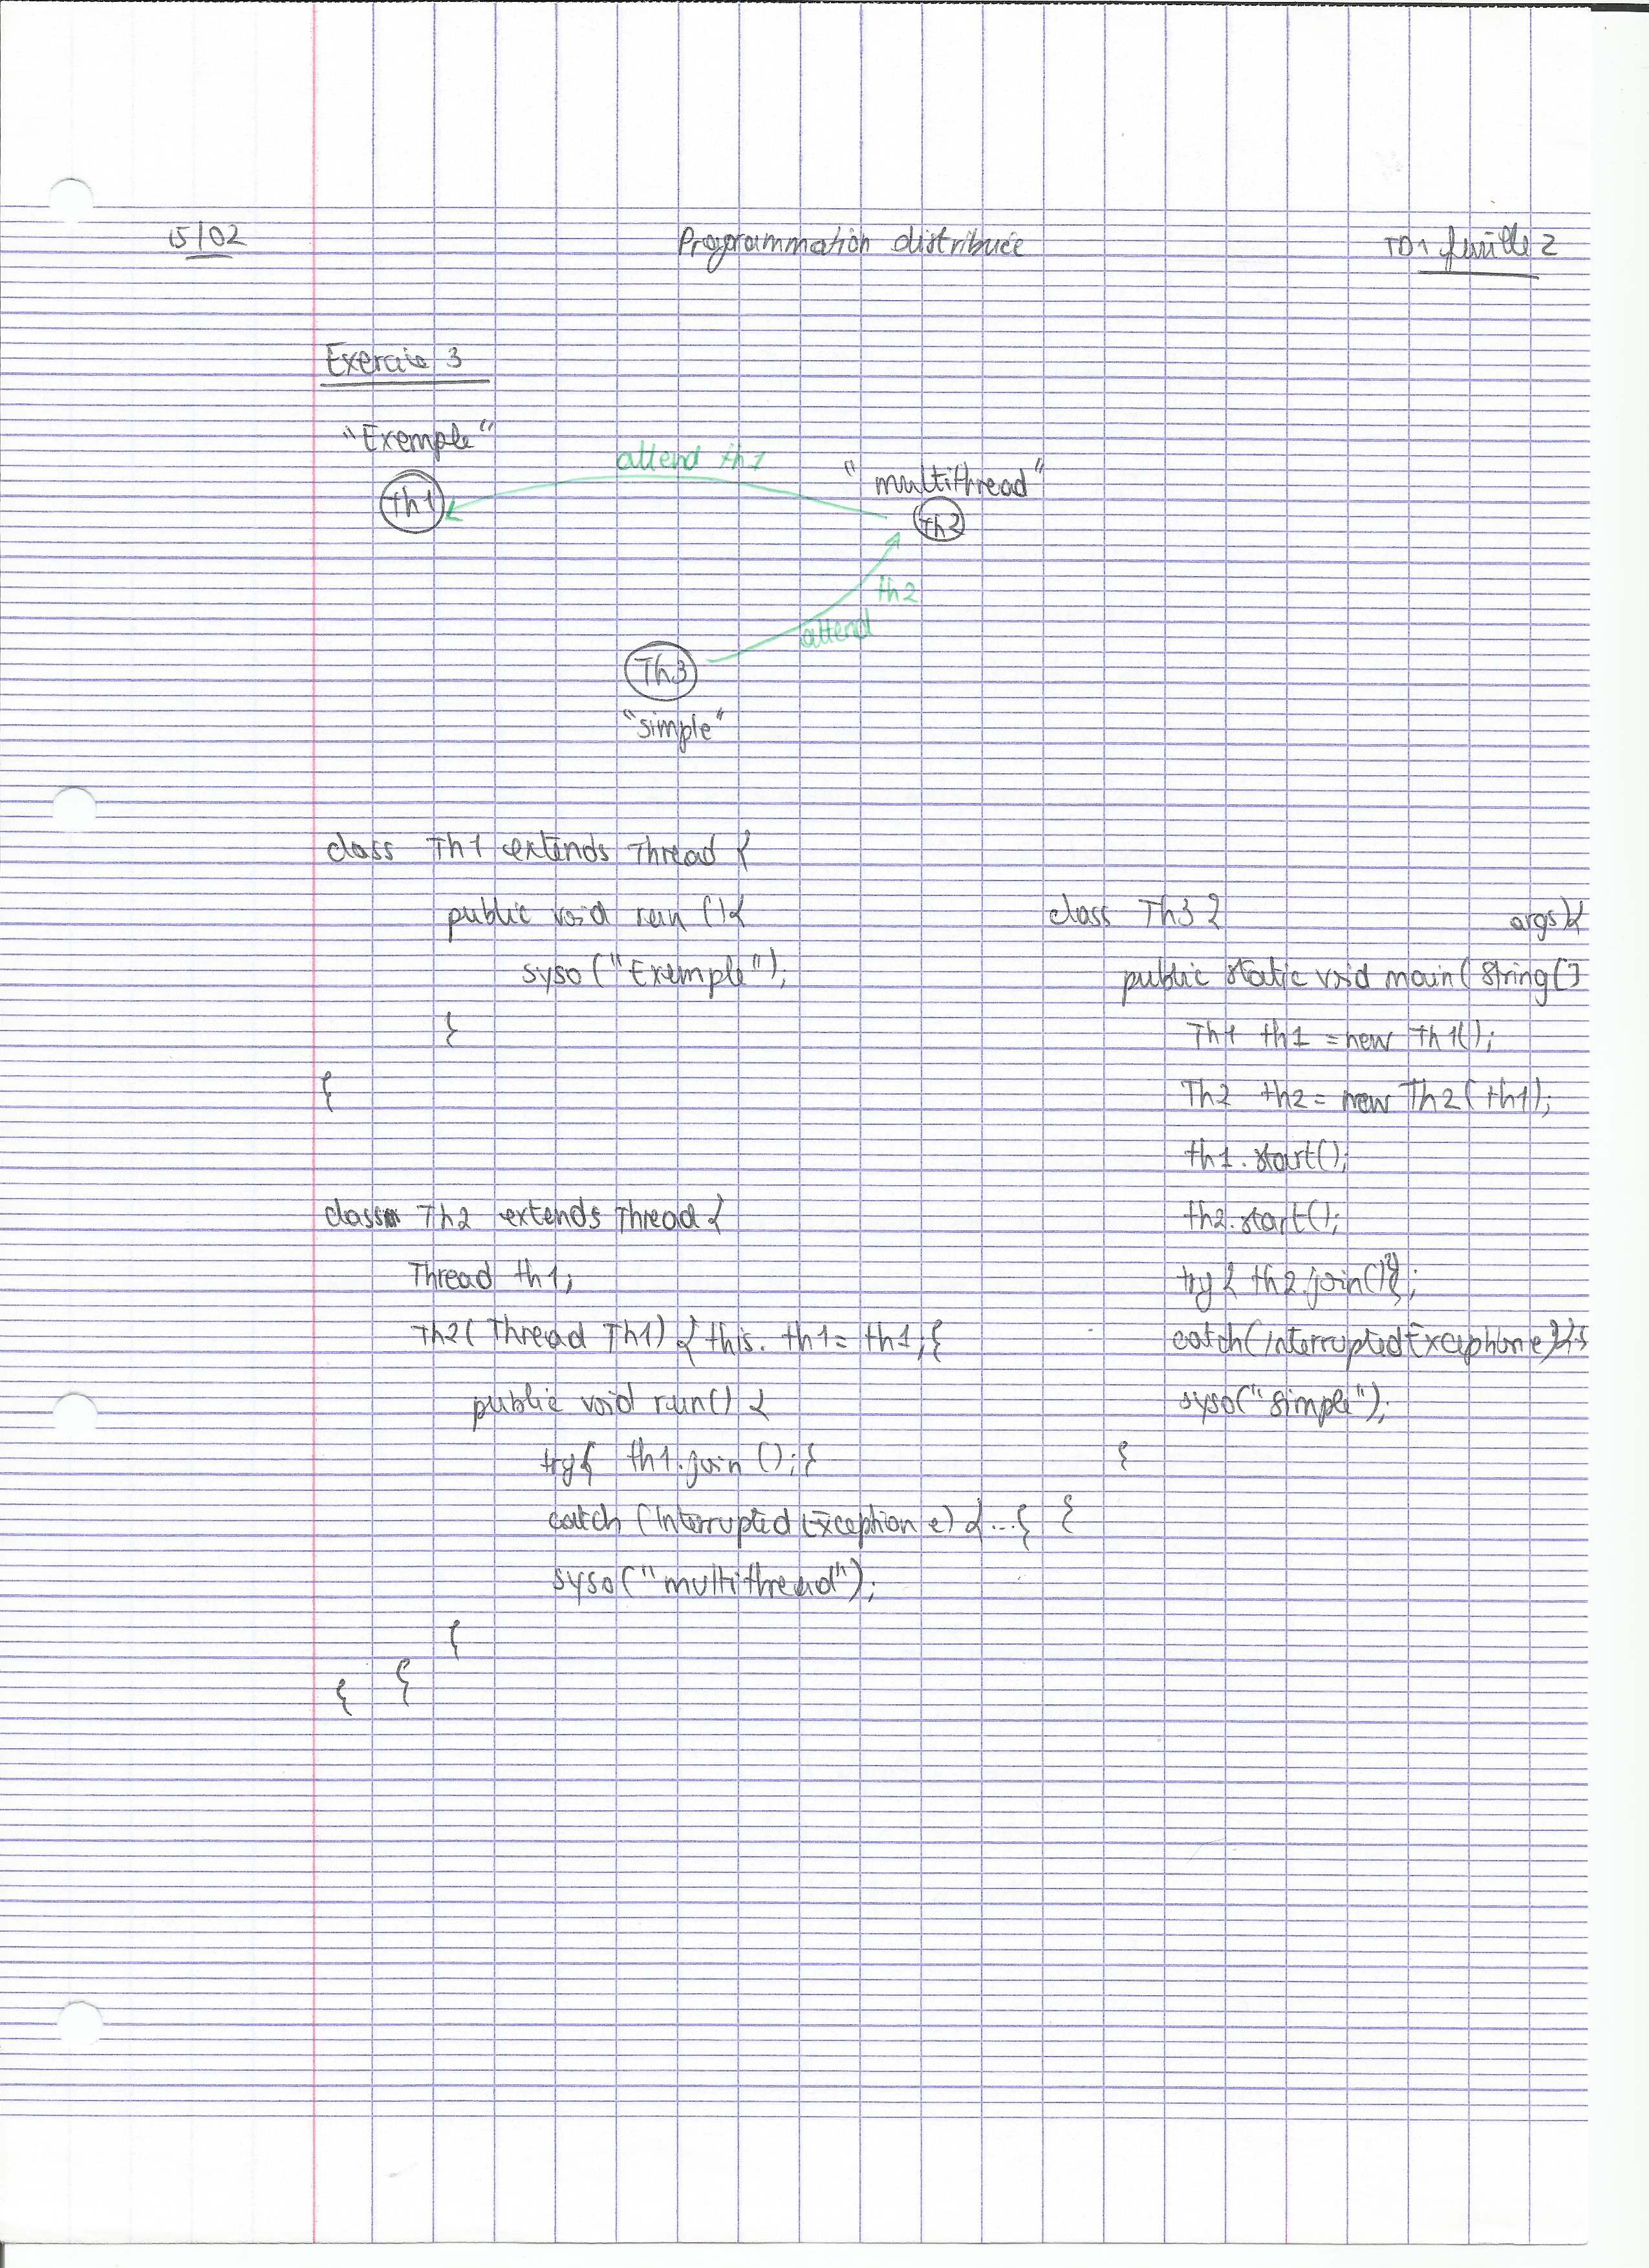 15/02 Programmation distribuée TD1 feuille 2
Exercice 3
"Exemple"
Th1
attend th1
"multithread"
Th2
attend th2
Th3
"simple"
class Th1 extends Thread {
public void run () {
syso ("Exemple");
}
}
class Th2 extends Thread {
Thread th1;
Th2( Thread Th1) { this. th1 = th1; }
public void run() {
try { th1.join (); }
catch (Interrupted Exception e) { ... }
syso ("multithread");
}
}
}
class Th3 {
public static void main ( String []
args) {
Th1 th1 = new Th1();
Th2 th2 = new Th2 ( th1);
th1. start();
th2. start();
try { th2. join() };
catch ( Interrupted Exception e) { }
syso("simple");
}
}